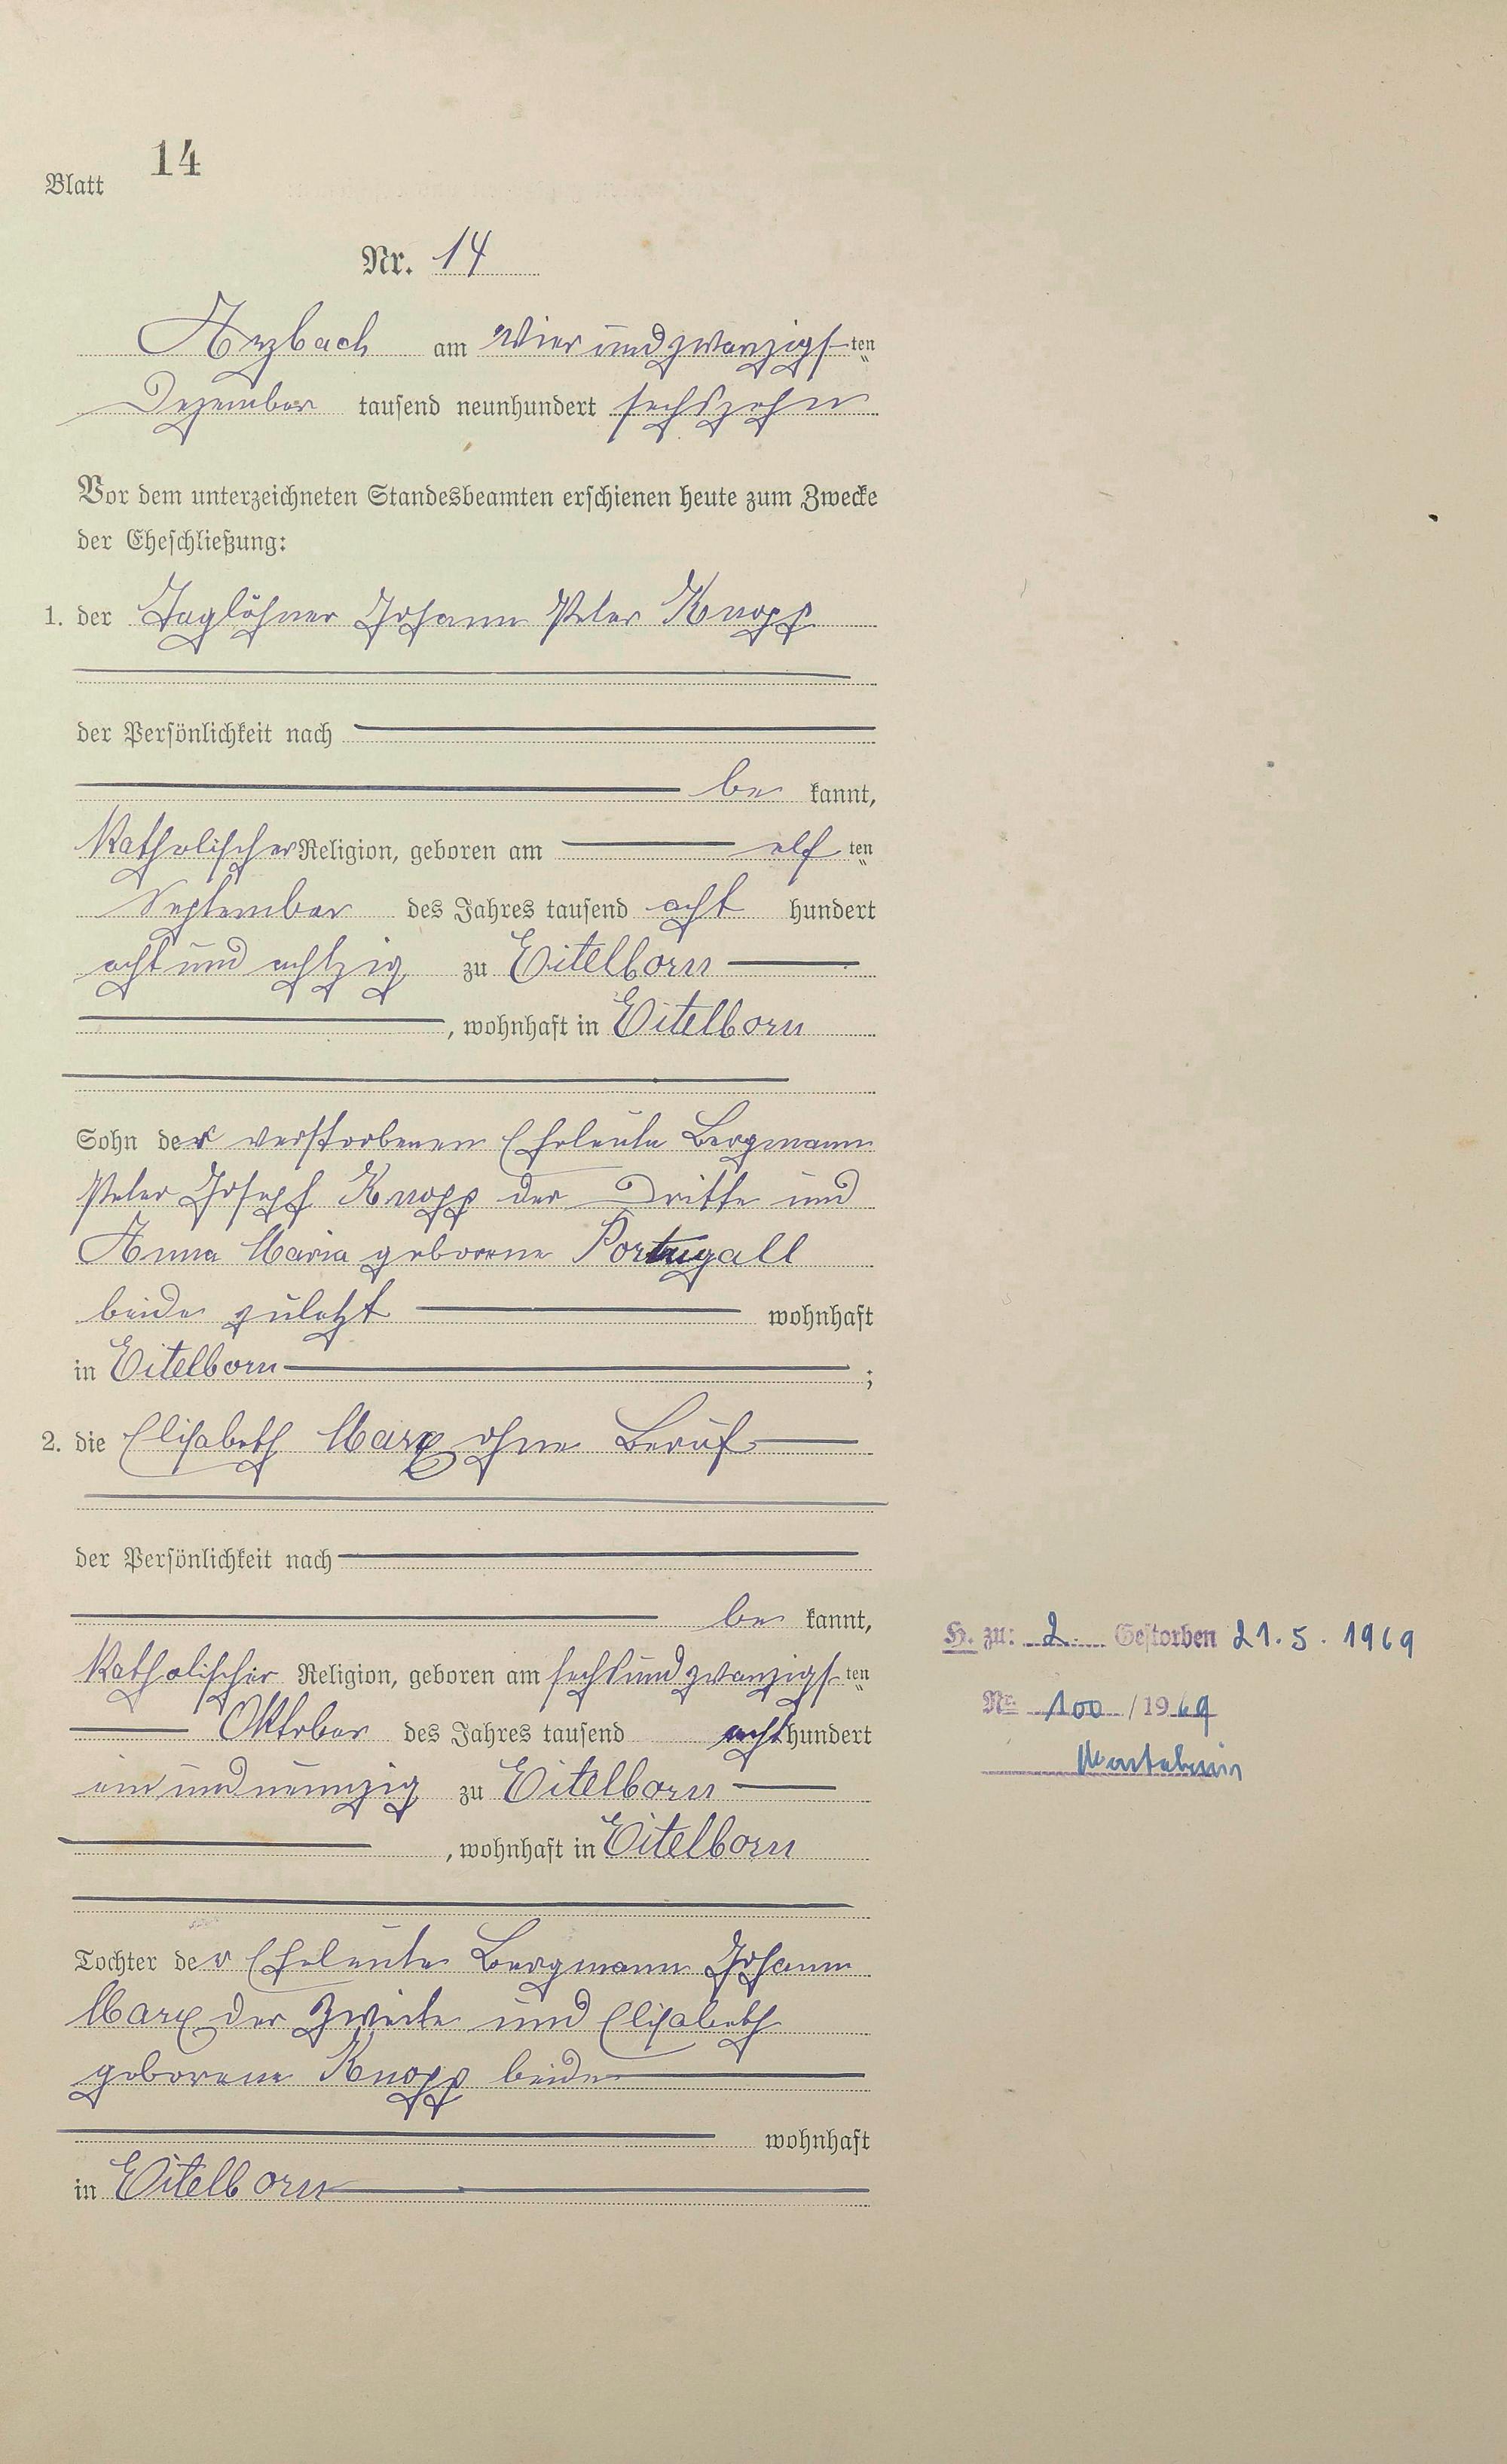 Blatt 14
Nr. 14
Arzbach am vierundzwanzigsten
Dezember tausend neunhundert sechszehn
Vor dem unterzeichneten Standesbeamten erschienen heute zum Zwecke
der Eheschließung:
1. der Taglöhner Johann Peter Knopp
der Persönlichkeit nach
be kannt,
katholischer Religion, geboren am elf ten
September des Jahres tausend acht hundert
acht und achtzig zu Eitelborn
, wohnhaft in Eitelborn
Sohn der verstorbenen Eheleute Bergmann
Peter Joseph Knopp der Dritte und
Anna Maria geborene Portugall
beide zuletzt wohnhaft
in Eitelborn ;
2. die Elisabeth Marx ohne Beruf
der Persönlichkeit nach
be kannt,
katholischer Religion, geboren am sechsundzwanzigsten
Oktober des Jahres tausend acht hundert
ein und neunzig zu Eitelborn
, wohnhaft in Eitelborn
Tochter der Eheleute Bergmann Johann
Marx der Zweite und Elisabeth
geborene Knopp beide
wohnhaft
in Eitelborn
H. zu: 2. Gestorben 21.5.1969
Nr. 100 / 1969